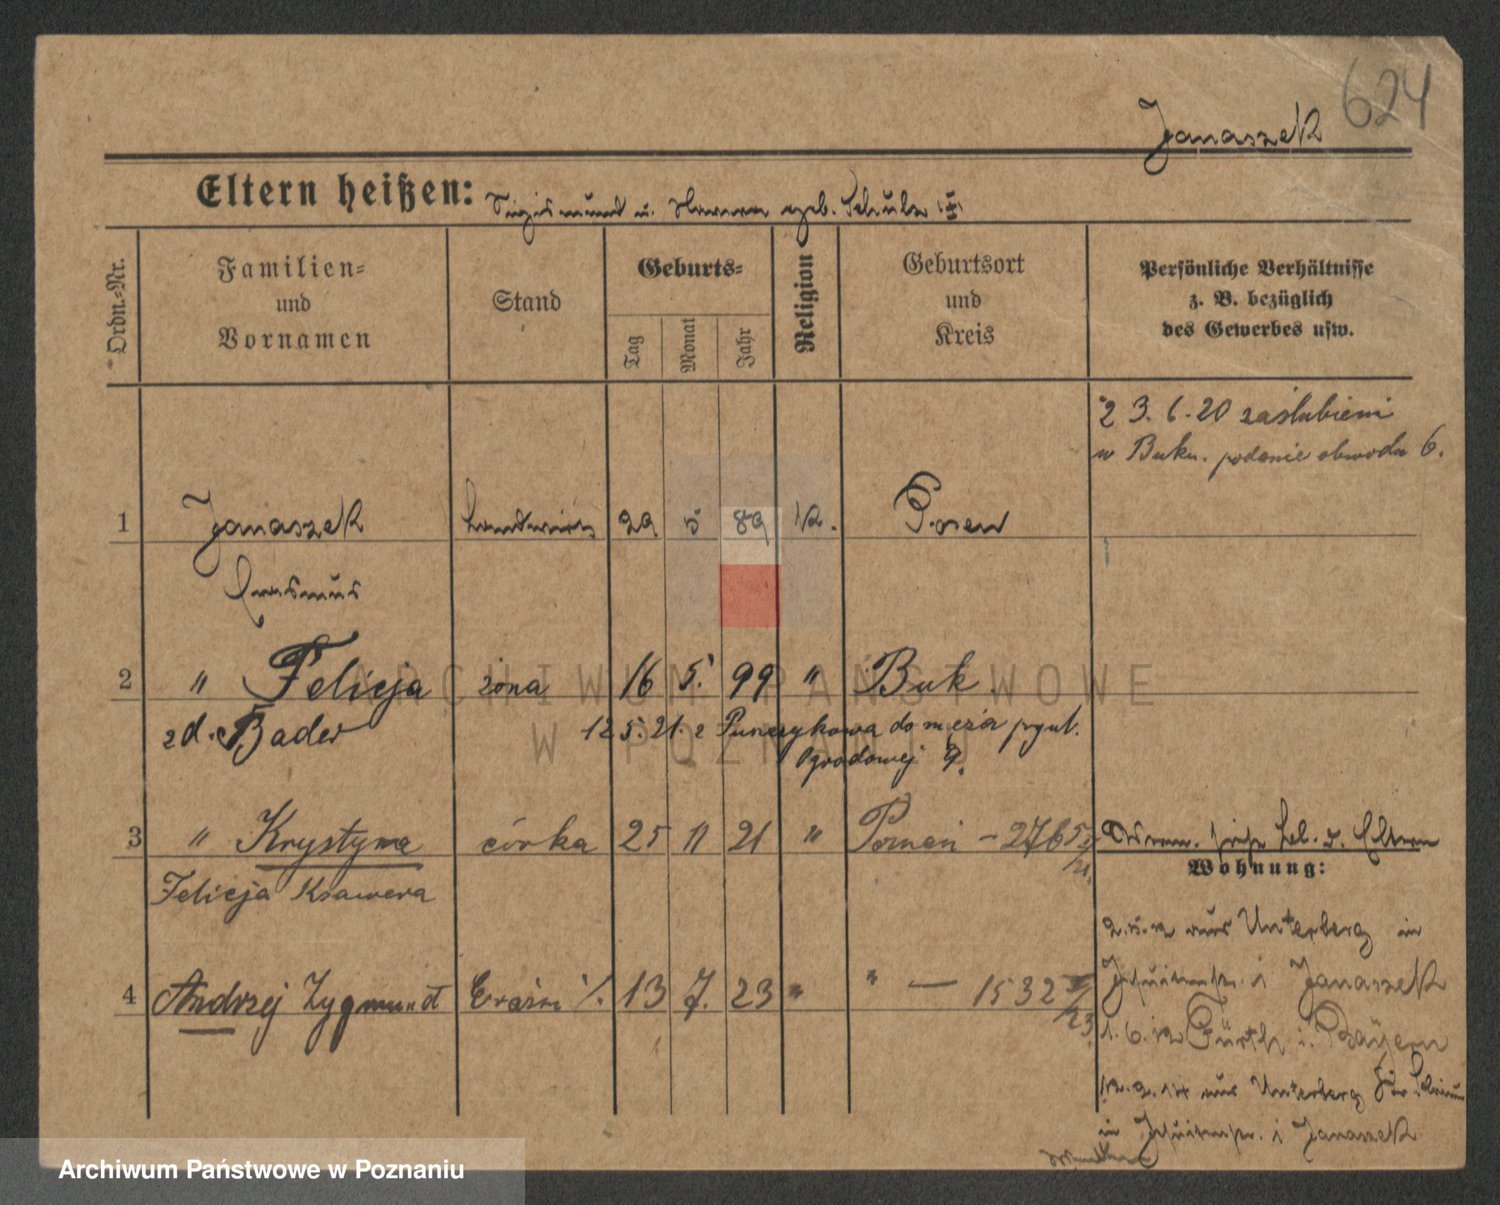 624
Janaszek
Eltern heißen: Sigismund u. geb. Schulz
Ordn.-Nr.
Familien-
und
Vornamen
Stand
Geburts-
Tag
Monat
Jahr
Religion
Geburtsort
und
Kreis
Persönliche Verhältnisse
z. B. bezüglich
des Gewerbes usw.
z 3.6.20 zaślubieni
w Buku. podanie obwodu 6.
1 Janaszek Landwirt 29 5 89 K. Posen
Erasmus
2 " Felicja żona 16 5. 99 " Buk
zd. Bader 12 5. 21. z do męża
Ogrodowej 9.
3 " Krystyna córka 25 11 21 " Poznań – 2765
Felicja Ksawera
Wohnung:
2.5.12 aus Unterberg in
i Janaszek
4 Andrzej Zygmunt 13 7. 23 " " — 1532
1.6.12 Fürth i. Bayern
aus Unterberg
in i Janaszek
ARCHIWUM PAŃSTWOWE
W POZNANIU
Archiwum Państwowe w Poznaniu